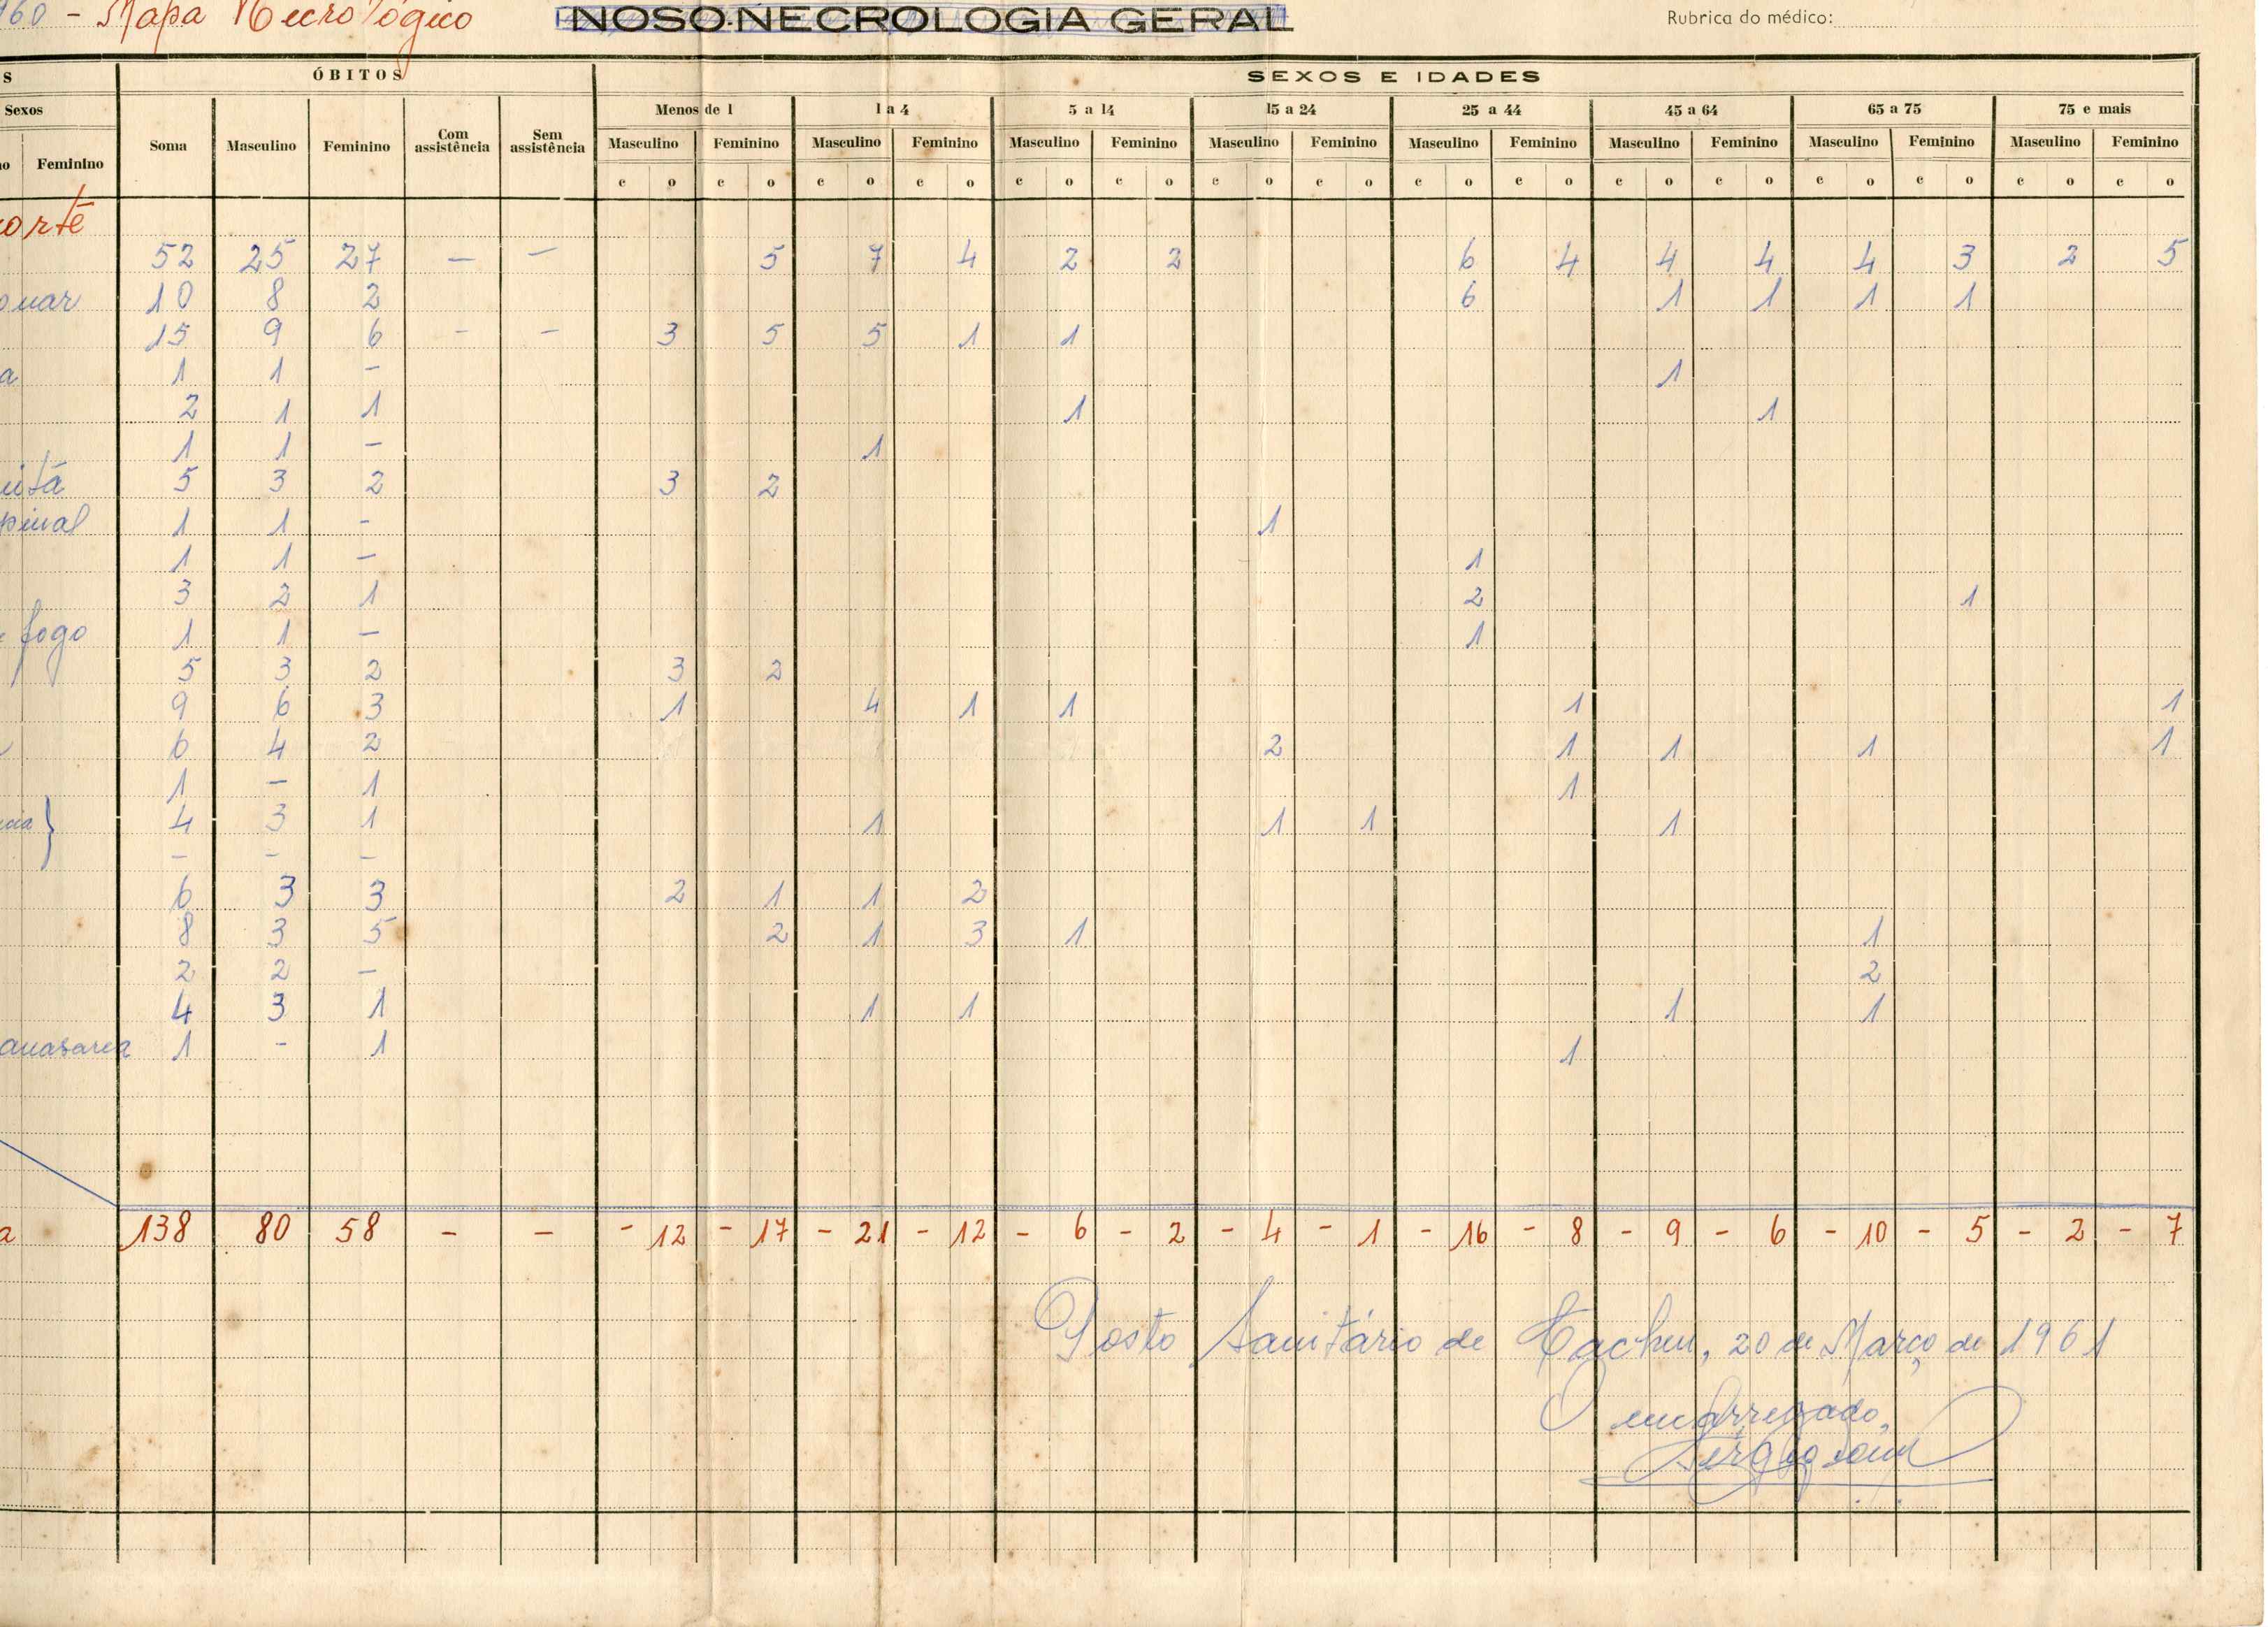 960 - Mapa Necrológico NOSO-NECROLOGIA GERAL Rubrica do médico:
S ÓBITOS SEXOS E IDADES
Sexos Soma Masculino Feminino Com assistência Sem assistência Menos de 1 1 a 4 5 a 14 15 a 24 25 a 44 45 a 64 65 a 75 75 e mais
no Feminino Masculino Feminino Masculino Feminino Masculino Feminino Masculino Feminino Masculino Feminino Masculino Feminino Masculino Feminino Masculino Feminino
c o c o c o c o c o c o c o c o c o c o c o c o c o c o c o c o
orte
52 25 27 — — 5 7 4 2 2 6 4 4 4 4 3 2 5
onar 10 8 2 6 1 1 1 1
15 9 6 - - 3 5 5 1 1
a 1 1 - 1
2 1 1 1 1
1 1 - 1
uitá 5 3 2 3 2
pinal 1 1 - 1
1 1 - 1
3 2 1 2 1
e fogo 1 1 - 1
5 3 2 3 2
9 6 3 1 4 1 1 1 1
6 4 2 2 1 1 1 1
1 - 1 1
4 3 1 1 1 1 1
- - -
6 3 3 2 1 1 2
8 3 5 2 1 3 1 1
2 2 - 2
4 3 1 1 1 1 1
anasarca 1 - 1 1
a 138 80 58 - - - 12 - 17 - 21 - 12 - 6 - 2 - 4 - 1 - 16 - 8 - 9 - 6 - 10 - 5 - 2 - 7
Posto Sanitário de Cacheu, 20 de Março de 1961
O encarregado,